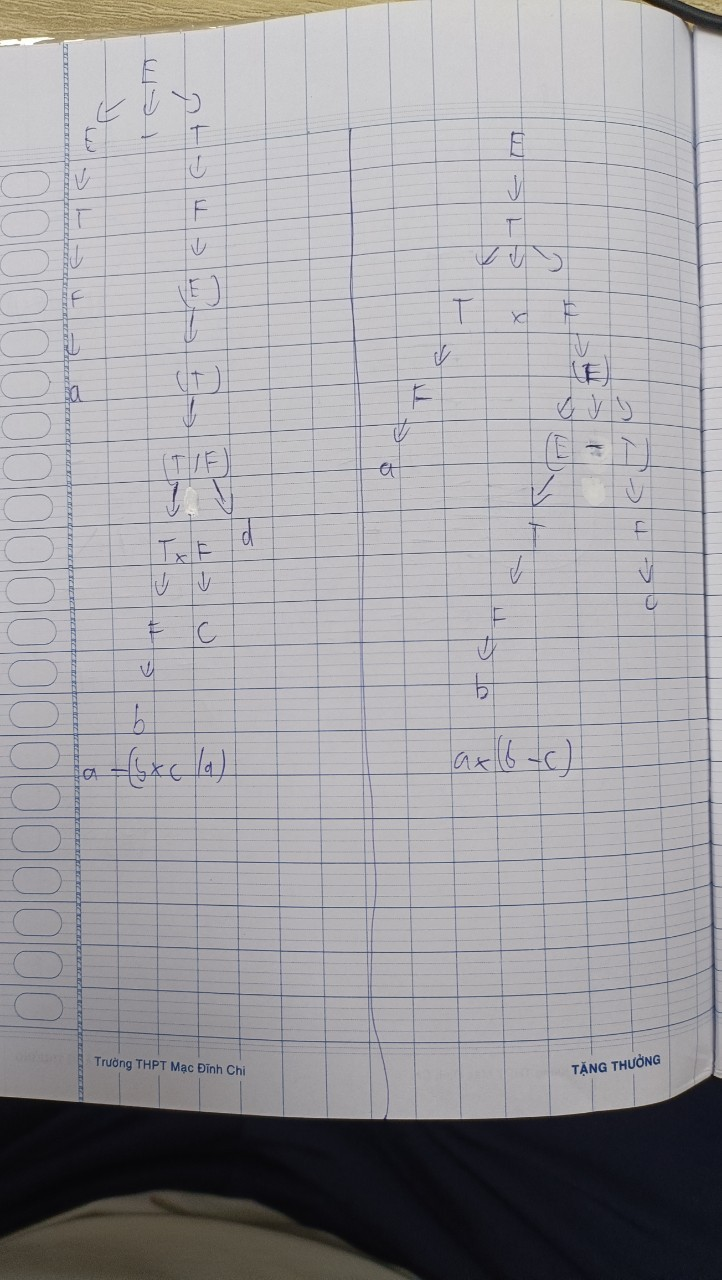 E
E - T
T F
F (E)
a (T)
(T / F)
T x F d
F C
b
a - (b x c / d)
E
T
T x F
F (E)
a (E - T)
T F
F c
b
a x (b - c)
Trường THPT Mạc Đĩnh Chi
TẶNG THƯỞNG